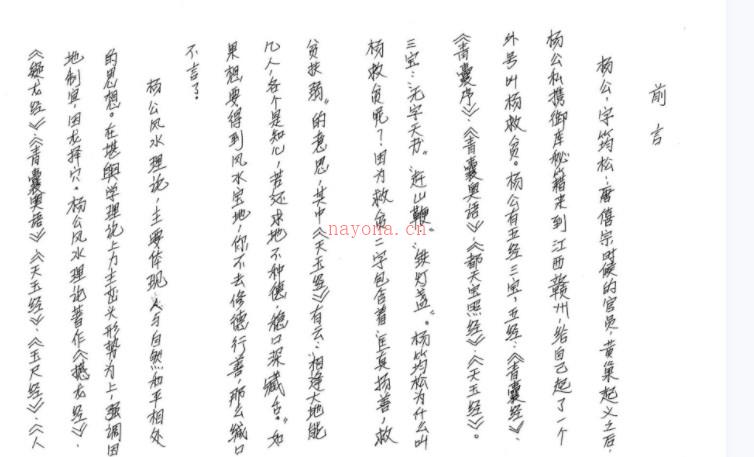 前言
杨公,字筠松,唐僖宗时候的官员,黄巢起义之后,
杨公私携御库秘籍来到江西赣州,给自己起了一个
外号叫杨救贫。杨公有五经三宝,五经:《青囊经》、
《青囊序》、《青囊奥语》、《都天宝照经》、《天玉经》。
三宝:“无字天书”“赶山鞭”“铁灯盏”。杨筠松为什么叫
杨救贫呢?因为救贫二字包含着“匡真扬善,救
贫扶弱”的意思,其中《天玉经》有云:“相逢大地能
几人,个个是知心,若还求地不种德,稳口深藏舌。”如
果想要得到风水宝地,你不去修德行善,那么缄口
不言了。
杨公风水理论,主要体现人与自然和平相处
的思想。在堪舆学理论上力主峦头形势为上,强调因
地制宜,因龙择穴。杨公风水理论著作《撼龙经》、
《疑龙经》、《青囊奥语》、《天玉经》、《玉尺经》、《人
nayona.cn